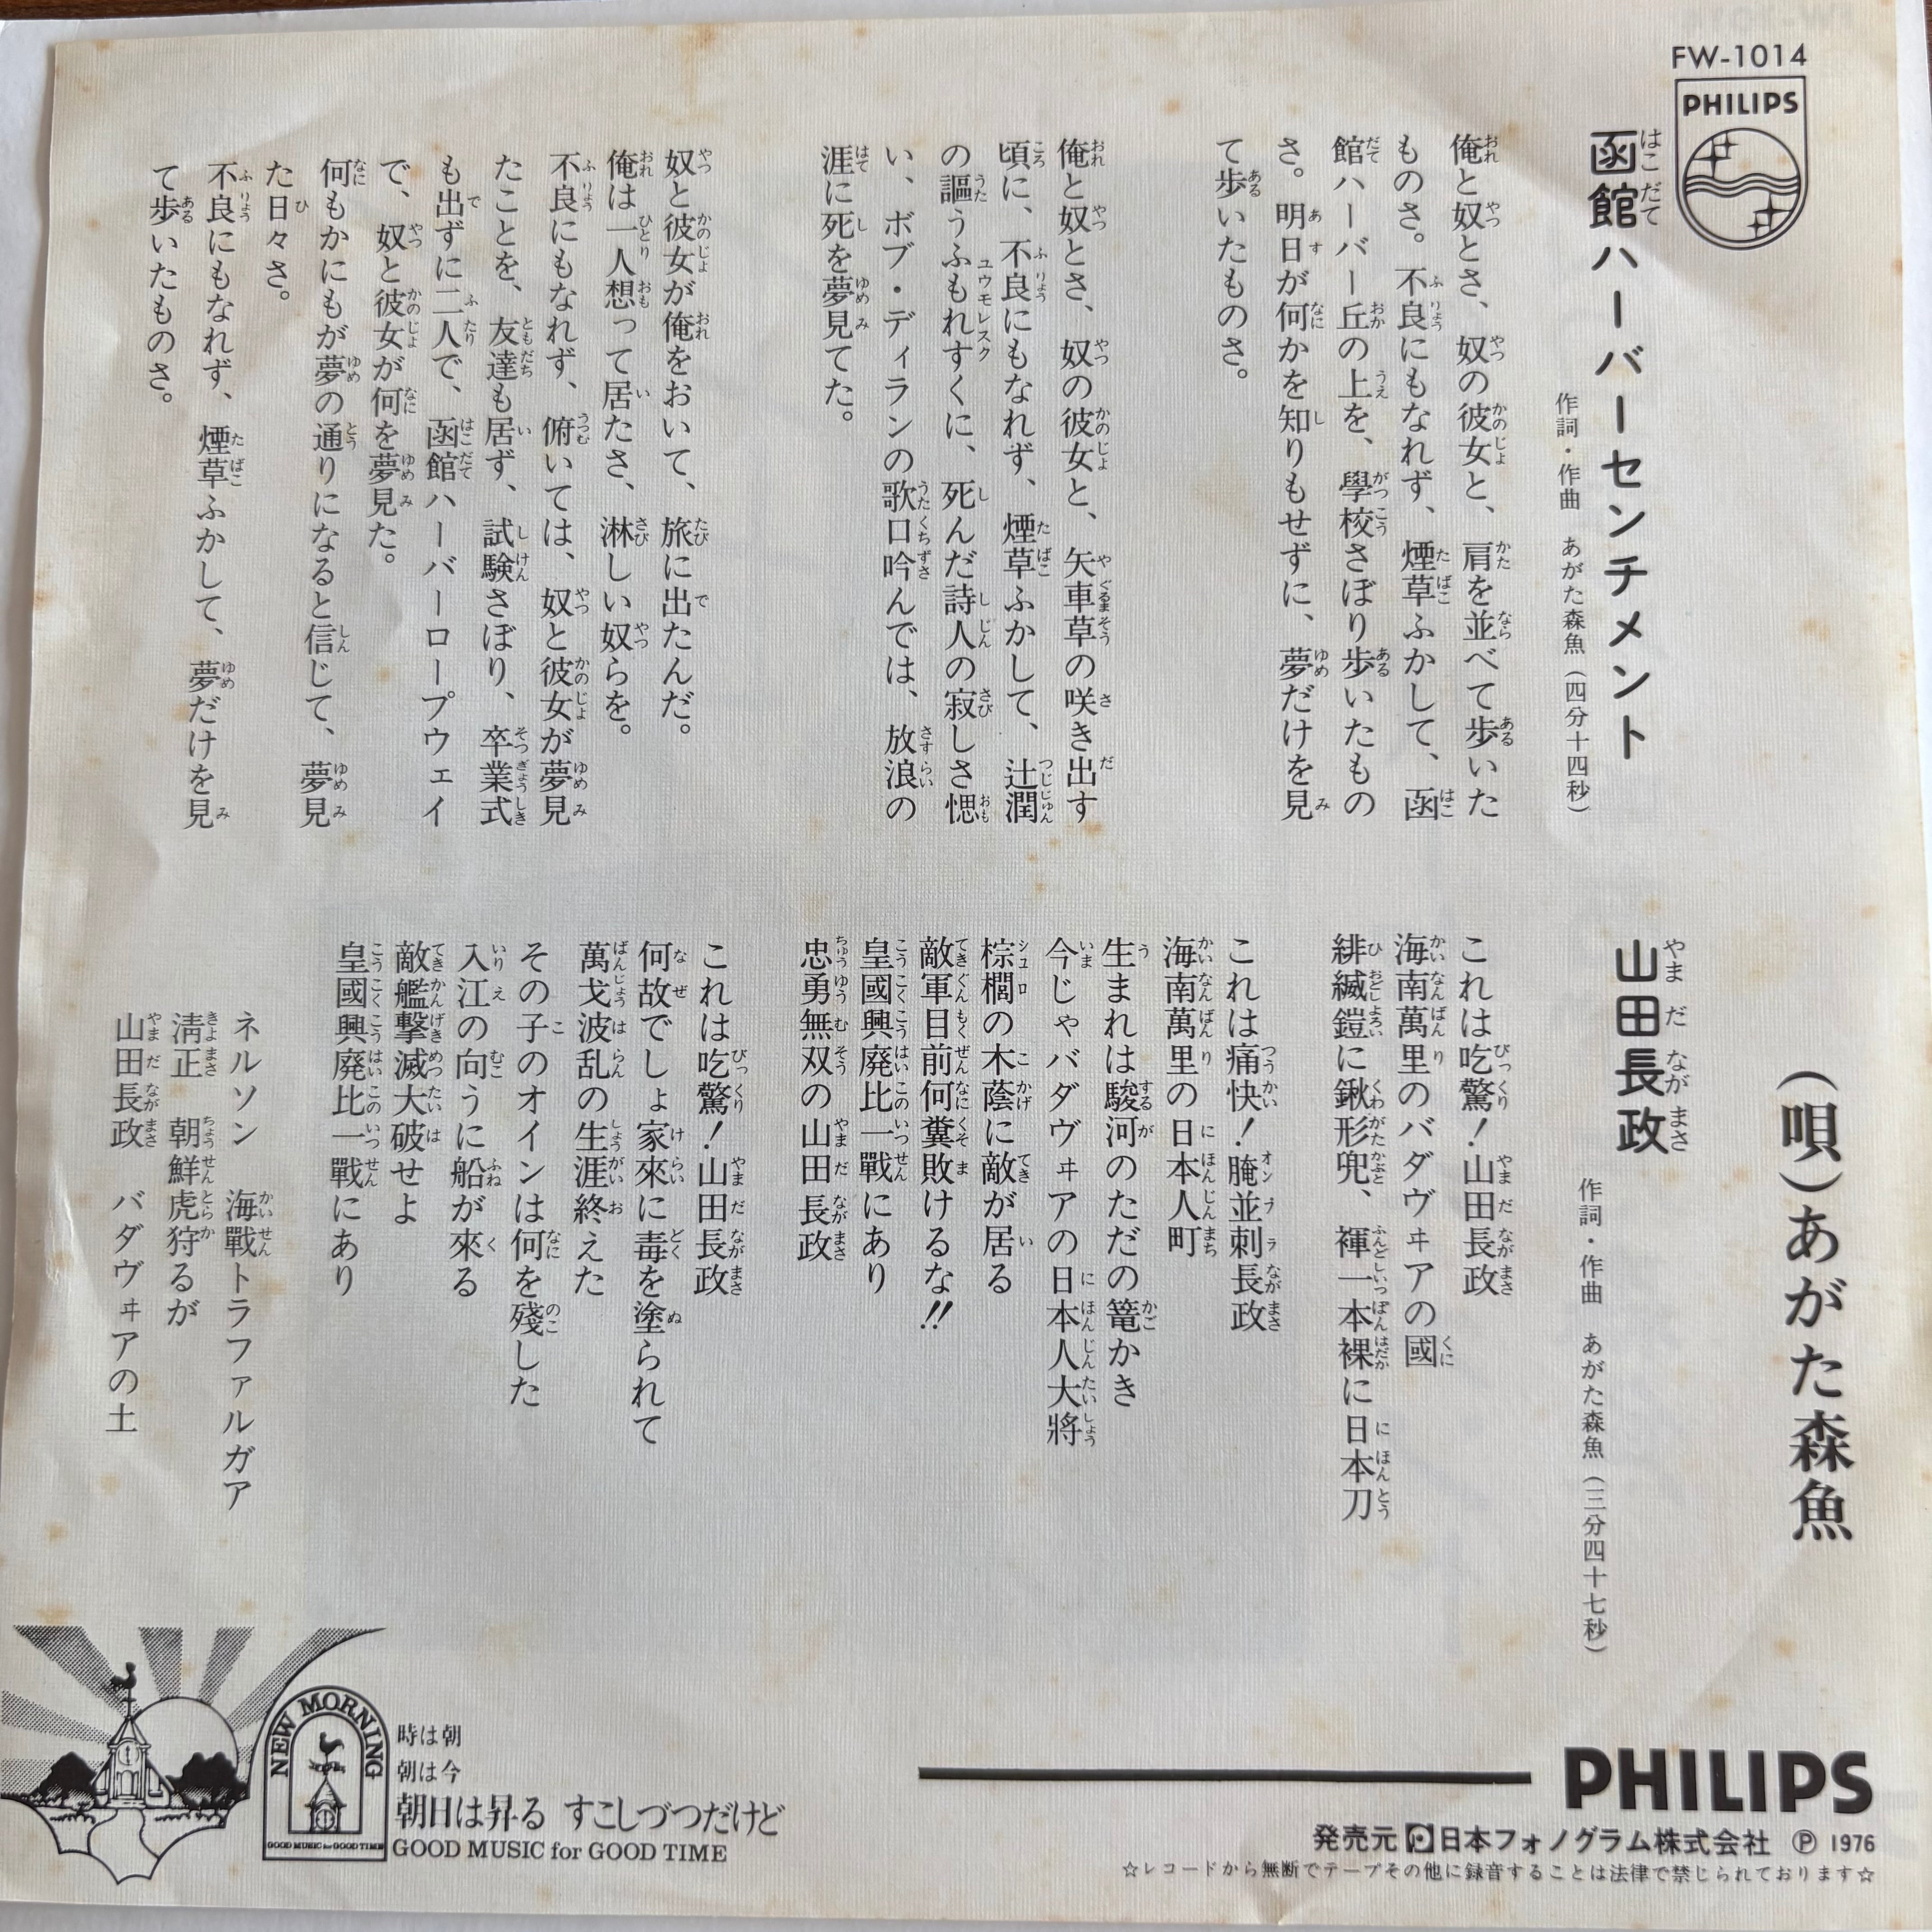 FW-1014
PHILIPS
(唄)あがた森魚
函館ハーバーセンチメント
作詞・作曲 あがた森魚(四分十四秒)
俺と奴とさ、奴の彼女と、肩を並べて歩いた
ものさ。不良にもなれず、煙草ふかして、函
館ハーバー丘の上を、學校さぼり歩いたもの
さ。明日が何かを知りもせずに、夢だけを見
て歩いたものさ。
俺と奴とさ、奴の彼女と、矢車草の咲き出す
頃に、不良にもなれず、煙草ふかして、辻潤
の謳うふもれすくに、死んだ詩人の寂しさ愢
い、ボブ・ディランの歌口吟んでは、放浪の
涯に死を夢見てた。
奴と彼女が俺をおいて、旅に出たんだ。
俺は一人想って居たさ、淋しい奴らを。
不良にもなれず、俯いては、奴と彼女が夢見
たことを、友達も居ず、試験さぼり、卒業式
も出ずに二人で、函館ハーバーロープウェイ
で、奴と彼女が何を夢見た。
何もかにもが夢の通りになると信じて、夢見
た日々さ。
不良にもなれず、煙草ふかして、夢だけを見
て歩いたものさ。
山田長政
作詞・作曲 あがた森魚(三分四十七秒)
これは吃驚!山田長政
海南萬里のバダヴヰアの國
緋縅鎧に鍬形兜、褌一本裸に日本刀
これは痛快!腌並刺長政
海南萬里の日本人町
生まれは駿河のただの篭かき
今じゃバダヴヰアの日本人大將
棕櫚の木蔭に敵が居る
敵軍目前何糞敗けるな!!
皇國興廃比一戰にあり
忠勇無双の山田長政
これは吃驚!山田長政
何故でしょ家來に毒を塗られて
萬戈波乱の生涯終えた
その子のオインは何を殘した
入江の向うに船が來る
敵艦撃滅大破せよ
皇國興廃比一戰にあり
ネルソン 海戰トラファルガア
淸正 朝鮮虎狩るが
山田長政 バダヴヰアの土
NEW MORNING
GOOD MUSIC for GOOD TIME
時は朝
朝は今
朝日は昇る すこしづつだけど
GOOD MUSIC for GOOD TIME
PHILIPS
発売元 日本フォノグラム株式会社 Ⓟ 1976
☆レコードから無断でテープその他に録音することは法律で禁じられております☆